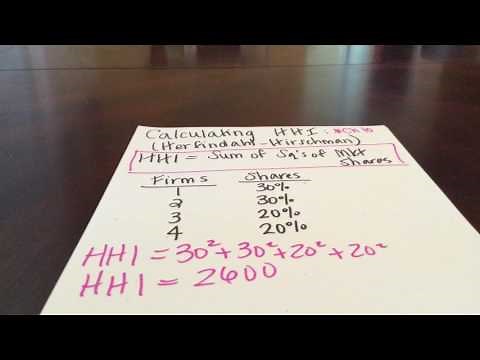 Calculating HHI: *Ch 10
(Herfindahl-Hirschman)
HHI = Sum of Sq's of Mkt Shares
Firms Shares
1 30%
2 30%
3 20%
4 20%
HHI = 30²+30²+20²+20²
HHI = 2600